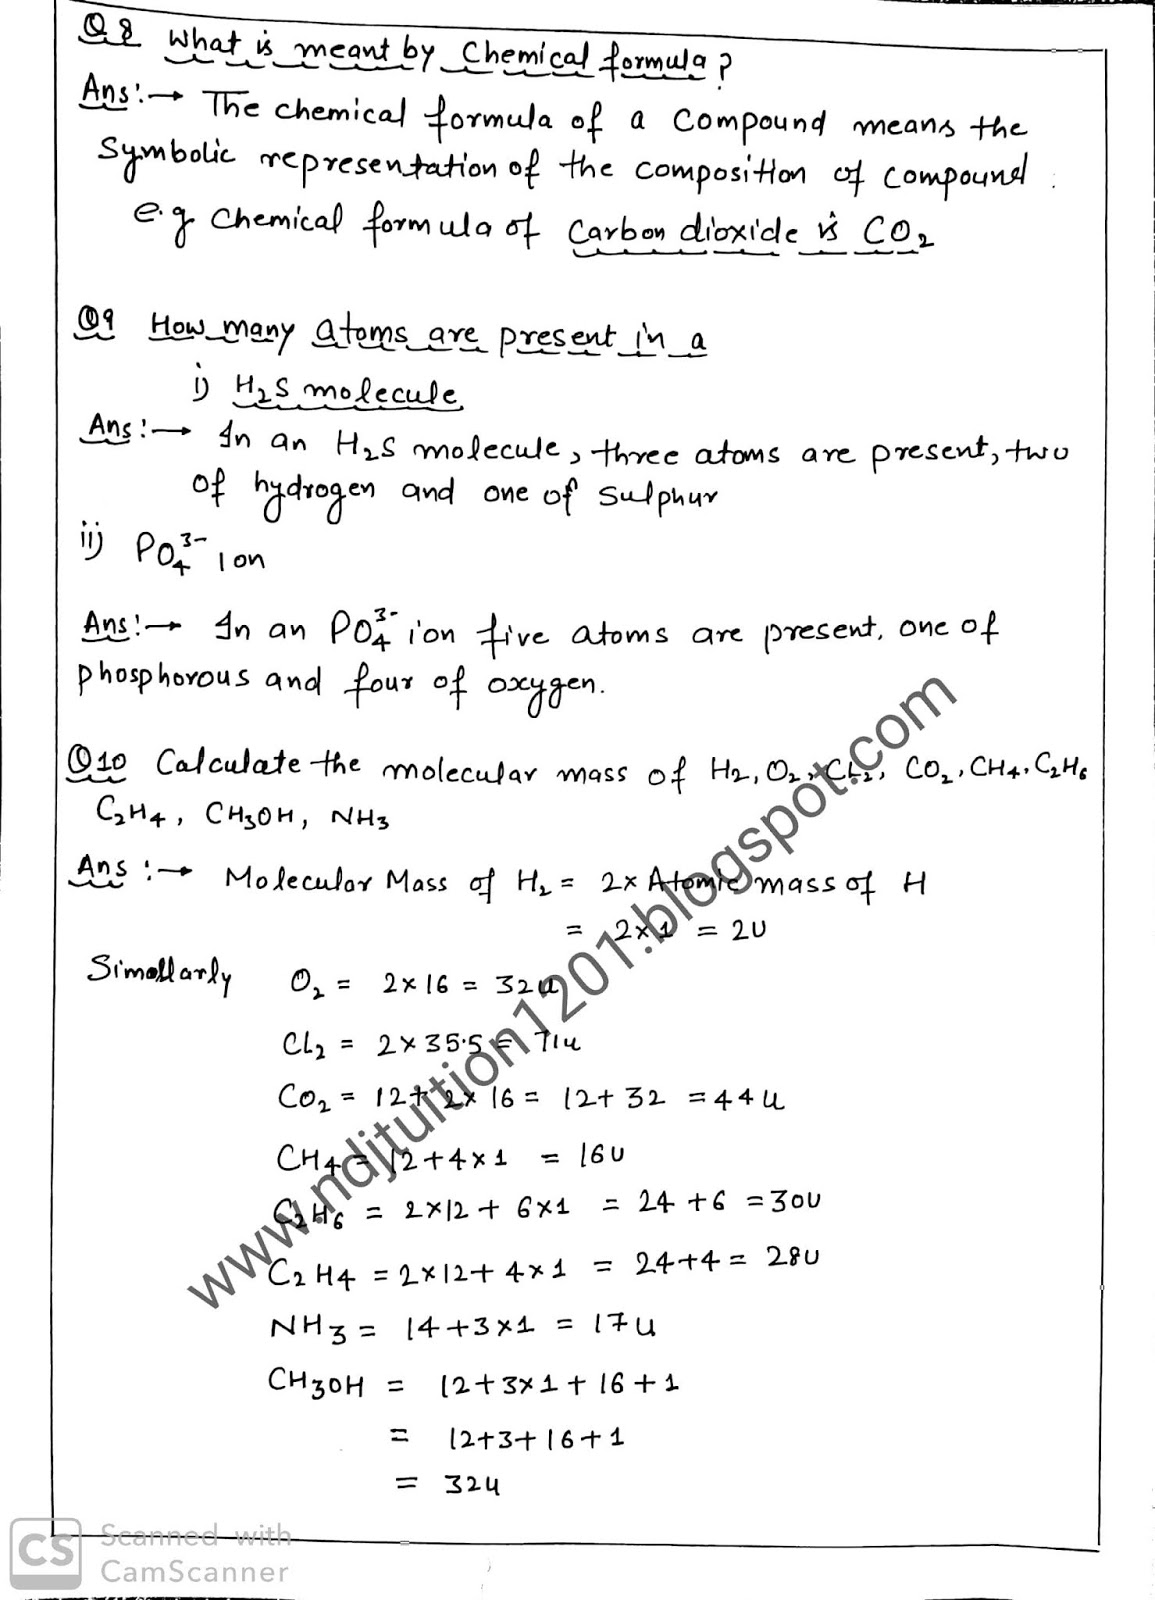 Q8 What is meant by Chemical formula?
Ans:→ The chemical formula of a compound means the
Symbolic representation of the composition of compound.
e.g chemical formula of Carbon dioxide is CO₂
Q9 How many atoms are present in a
i) H₂S molecule
Ans:→ In an H₂S molecule, three atoms are present, two
of hydrogen and one of Sulphur
ii) PO₄³⁻ ion
Ans:→ In an PO₄³⁻ ion five atoms are present, one of
phosphorous and four of oxygen.
Q10 Calculate the molecular mass of H₂, O₂, CL₂, CO₂, CH₄, C₂H₆
C₂H₄, CH₃OH, NH₃
Ans:→ Molecular Mass of H₂ = 2× Atomic mass of H
= 2×1 = 2U
Similarly O₂ = 2×16 = 32u
CL₂ = 2×35.5 = 71u
CO₂ = 12+2×16 = 12+32 = 44u
CH₄ = 12+4×1 = 16U
C₂H₆ = 2×12+6×1 = 24+6 = 30U
C₂H₄ = 2×12+4×1 = 24+4 = 28U
NH₃ = 14+3×1 = 17u
CH₃OH = 12+3×1+16+1
= 12+3+16+1
= 32u
www.ndjtuition1201.blogspot.com
CS Scanned with
CamScanner